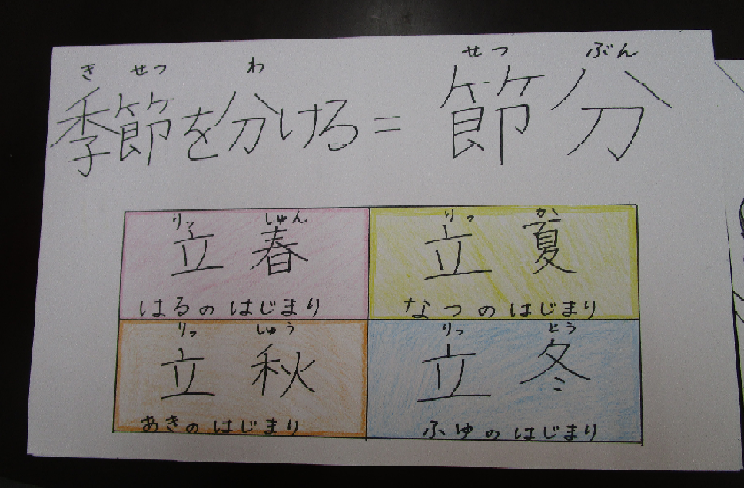 き せつ わ せつ ぶん
季節を分ける=節分
りっ しゅん りっ か
立春 立夏
はるのはじまり なつのはじまり
りっ しゅう りっ とう
立秋 立冬
あきのはじまり ふゆのはじまり